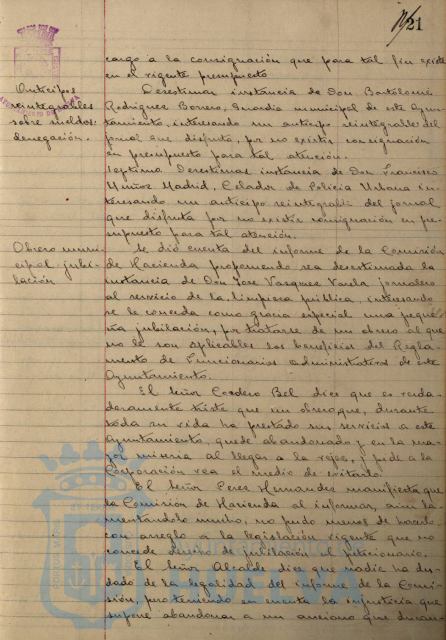 21
cargo a la consignación que para tal fin existe
en el vigente presupuesto
Anticipos
reintegrables
sobre sueldos
denegación.
Desestimar instancia de Don Bartolomé
Rodriguez Borrero, Guardia municipal de este Ayun-
tamiento, interesando un anticipo reintegrable del
jornal que disfruta, por no existir consignación
en presupuesto para tal atención.
Septima Desestimar instancia de Don Francisco
Muñoz Madrid, Celador de Policia Urbana in-
teresando un anticipo reintegrable del jornal
que disfruta por no existir consignación en pre-
supuesto para tal atención.
Obrero muni-
cipal, jubi-
lación
Se dió cuenta del informe de la Comisión
de Hacienda proponiendo sea desestimada la
instancia de Don Jose Vazquez Varela jornalero
al servicio de la limpieza pública, interesando
se le conceda como gracia especial una peque-
ña jubilación, por tratarse de un obrero al que
no le son aplicables los beneficios del Regla-
mento de Funcionarios administrativos de este
Ayuntamiento.
El Señor Cordero Bel dice que es verda-
deramente triste que un obrero que, durante
toda su vida ha prestado sus servicios a este
Ayuntamiento, quede abandonado y en la ma-
yor miseria al llegar a la vejez, y pide a la
Corporación vea el medio de evitarlo.
El Señor Perez Hernandez manifiesta que
la Comisión de Hacienda al informar, aun la-
mentandolo mucho, no pudo menos de hacerlo
con arreglo a la legislación vigente que no
concede derecho de jubilación al peticionario.
El Señor Alcalde dice que nadie ha du-
dado de la legalidad del informe de la Comi-
sión, pero teniendo en cuenta la injusticia que
supone abandonar a un anciano que duran-